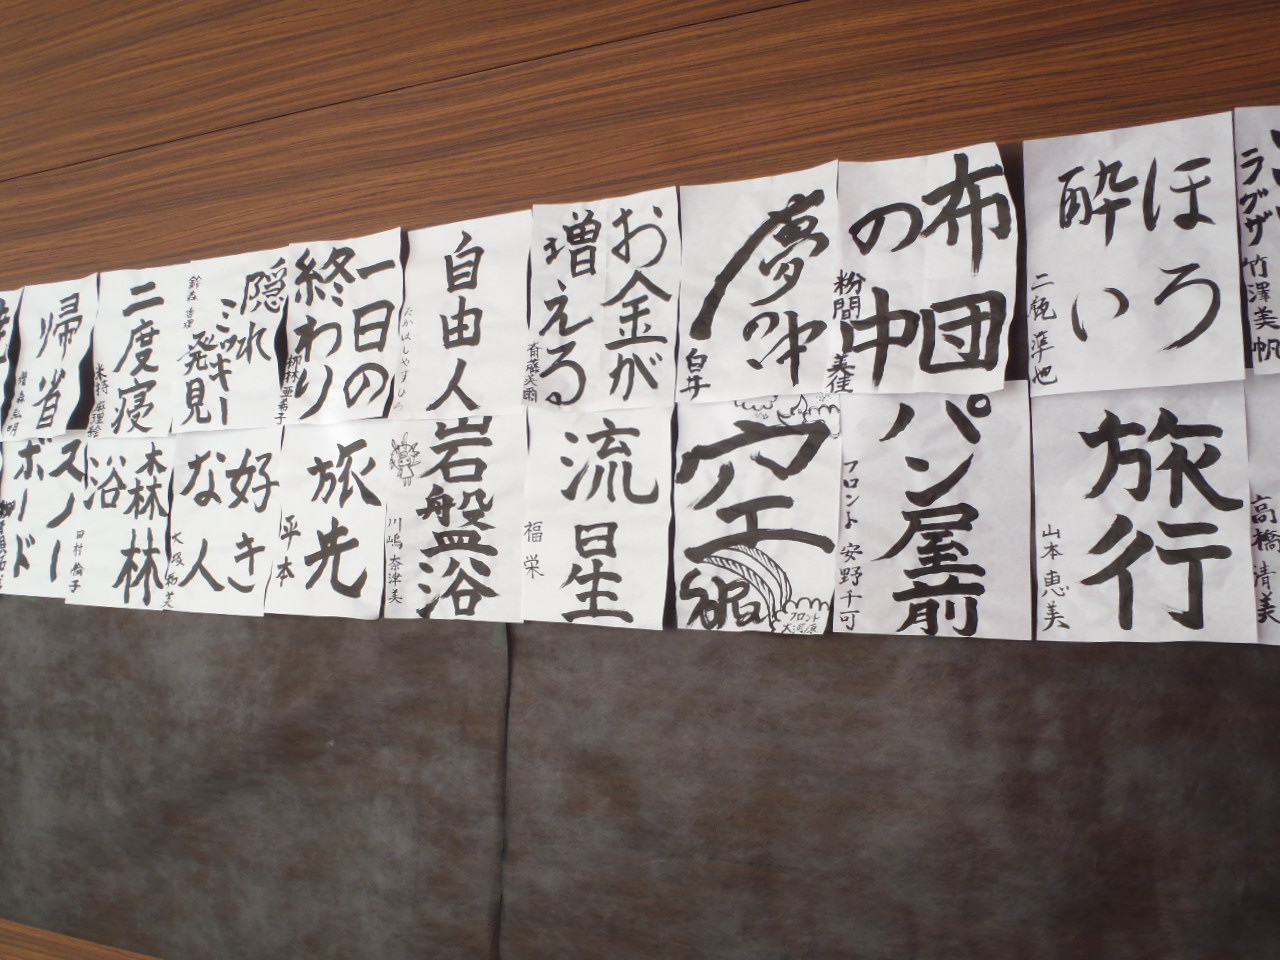 ほろ
酔い
二瓶 準也
布団
の中
粉間 美佳
夢の中
白井
お金が
増える。
斉藤美雨
自由人
たかはしやすひろ
一日の
終わり
柳林亜希子
隠れ
ミッキー
発見
二度寝
帰省
ラグザ 竹澤美帆
高橋 清美
旅行
山本 恵美
パン屋前
フロント 安野千可
空
フロント
大河原
流星
福栄
岩盤浴
川嶋 奈津美
旅先
平本
好き
な人
森林
浴
田村 倫子
スノー
ボード